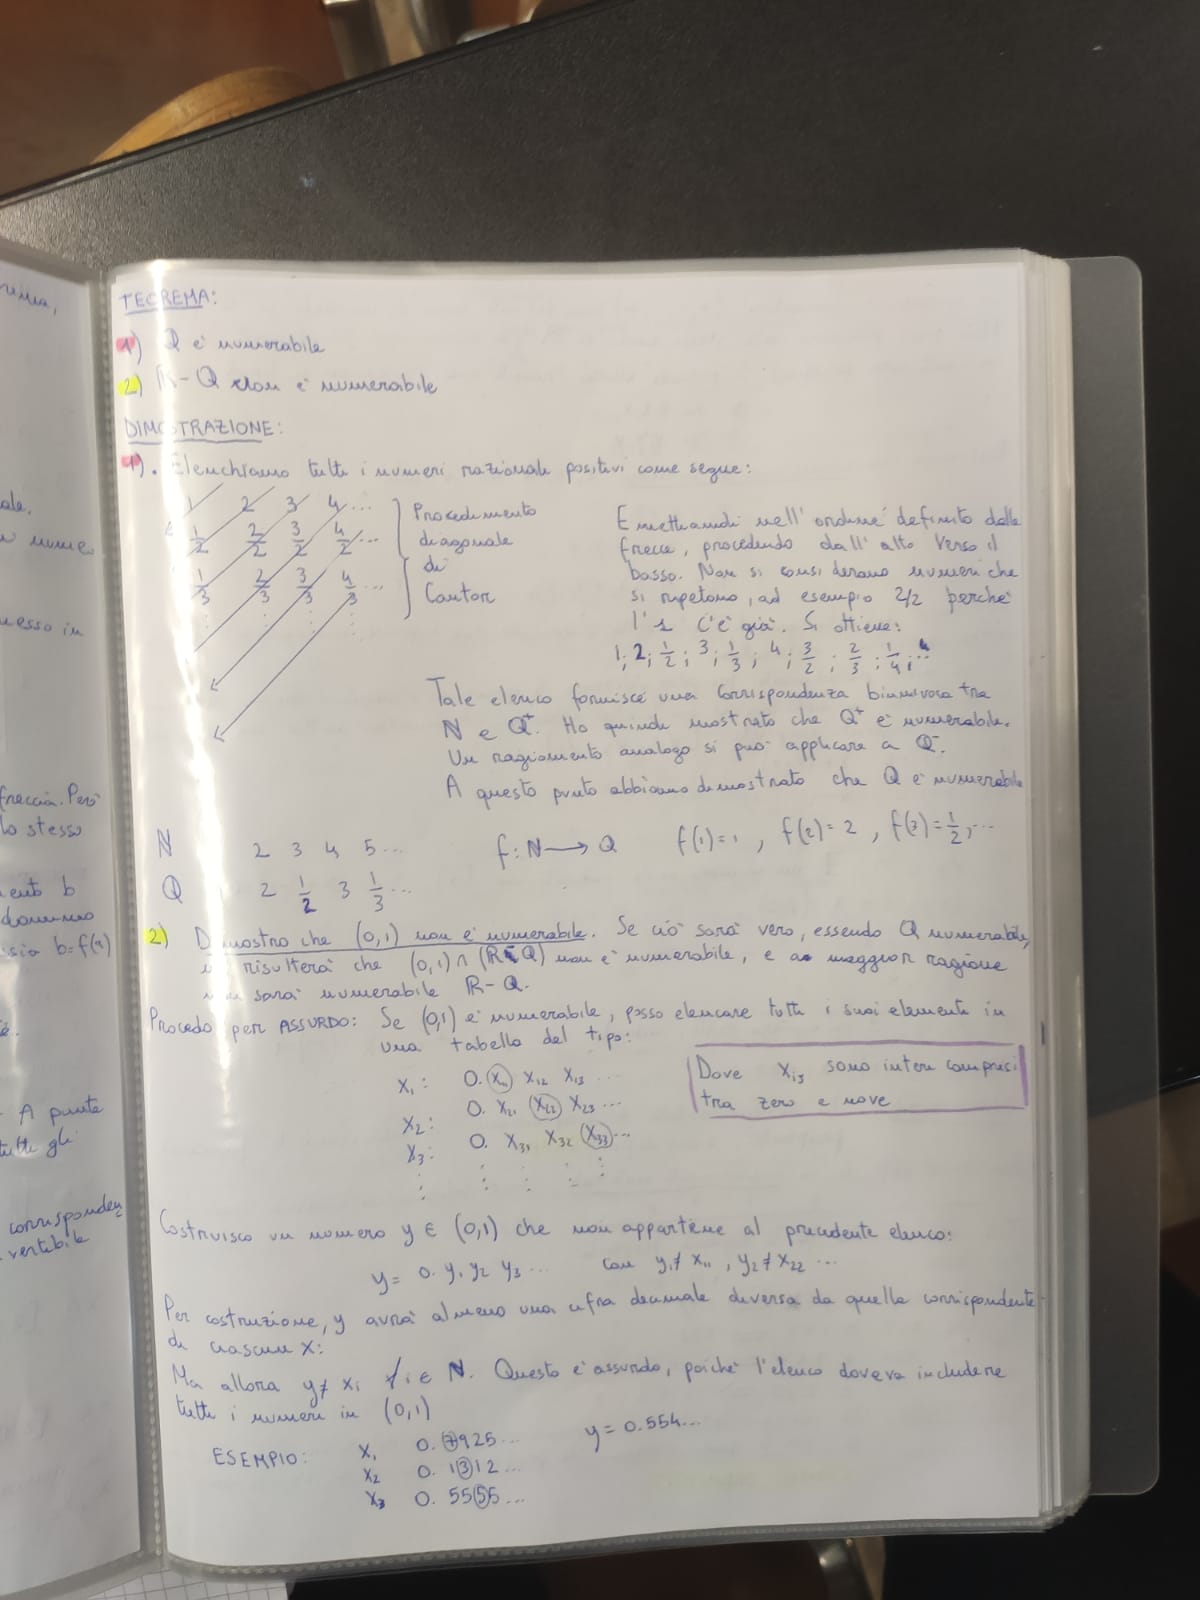 TEOREMA:
1) Q è numerabile
2) R-Q non è numerabile
DIMOSTRAZIONE:
1). Elenchiamo tutti i numeri razionale positivi come segue:
1 2 3 4 ...
1/2 2/2 3/2 4/2 ...
1/3 2/3 3/3 4/3 ...
Procedimento
diagonale
di
Cantor
E mettiamoli nell'ordine definito dalle
frecce, procedendo dall'alto verso il
basso. Non si considerano numeri che
si ripetono, ad esempio 2/2 perché
l'1 c'è già. Si ottiene:
1; 2; 1/2; 3; 1/3; 4; 3/2; 2/3; 1/4; ...
Tale elenco fornisce una corrispondenza biunivoca tra
N e Q+. Ho quindi mostrato che Q+ è numerabile.
Un ragionamento analogo si può applicare a Q-.
A questo punto abbiamo dimostrato che Q è numerabile
N 2 3 4 5 ... f: N → Q f(1)=1, f(2)=2, f(3)=1/2, ...
Q 2 1/2 3 1/3 ...
2) Dimostro che (0,1) non è numerabile. Se ciò sarà vero, essendo Q numerabile,
risulterà che (0,1) ∩ (R-Q) non è numerabile, e a maggior ragione
non sarà numerabile R-Q.
Procedo per ASSURDO: Se (0,1) è numerabile, posso elencare tutti i suoi elementi in
una tabella del tipo:
x1: 0. x11 x12 x13 ...
x2: 0. x21 x22 x23 ...
x3: 0. x31 x32 x33 ...
Dove xij sono interi compresi
tra zero e nove
Costruisco un numero y ∈ (0,1) che non appartiene al precedente elenco:
y = 0. y1 y2 y3 ... con y1≠x11, y2≠x22 ...
Per costruzione, y avrà almeno una cifra decimale diversa da quella corrispondente
di ciascun x:
Ma allora y≠xi ∀i ∈ N. Questo è assurdo, poiché l'elenco doveva includere
tutti i numeri in (0,1)
ESEMPIO: x1 0.7925... y = 0.554...
x2 0.1312...
x3 0.5555...
ale.
nesso in
freccia. Però
lo stesso
b
dominio
sia b=f(a)
A punte
tutti gli
corrisponden